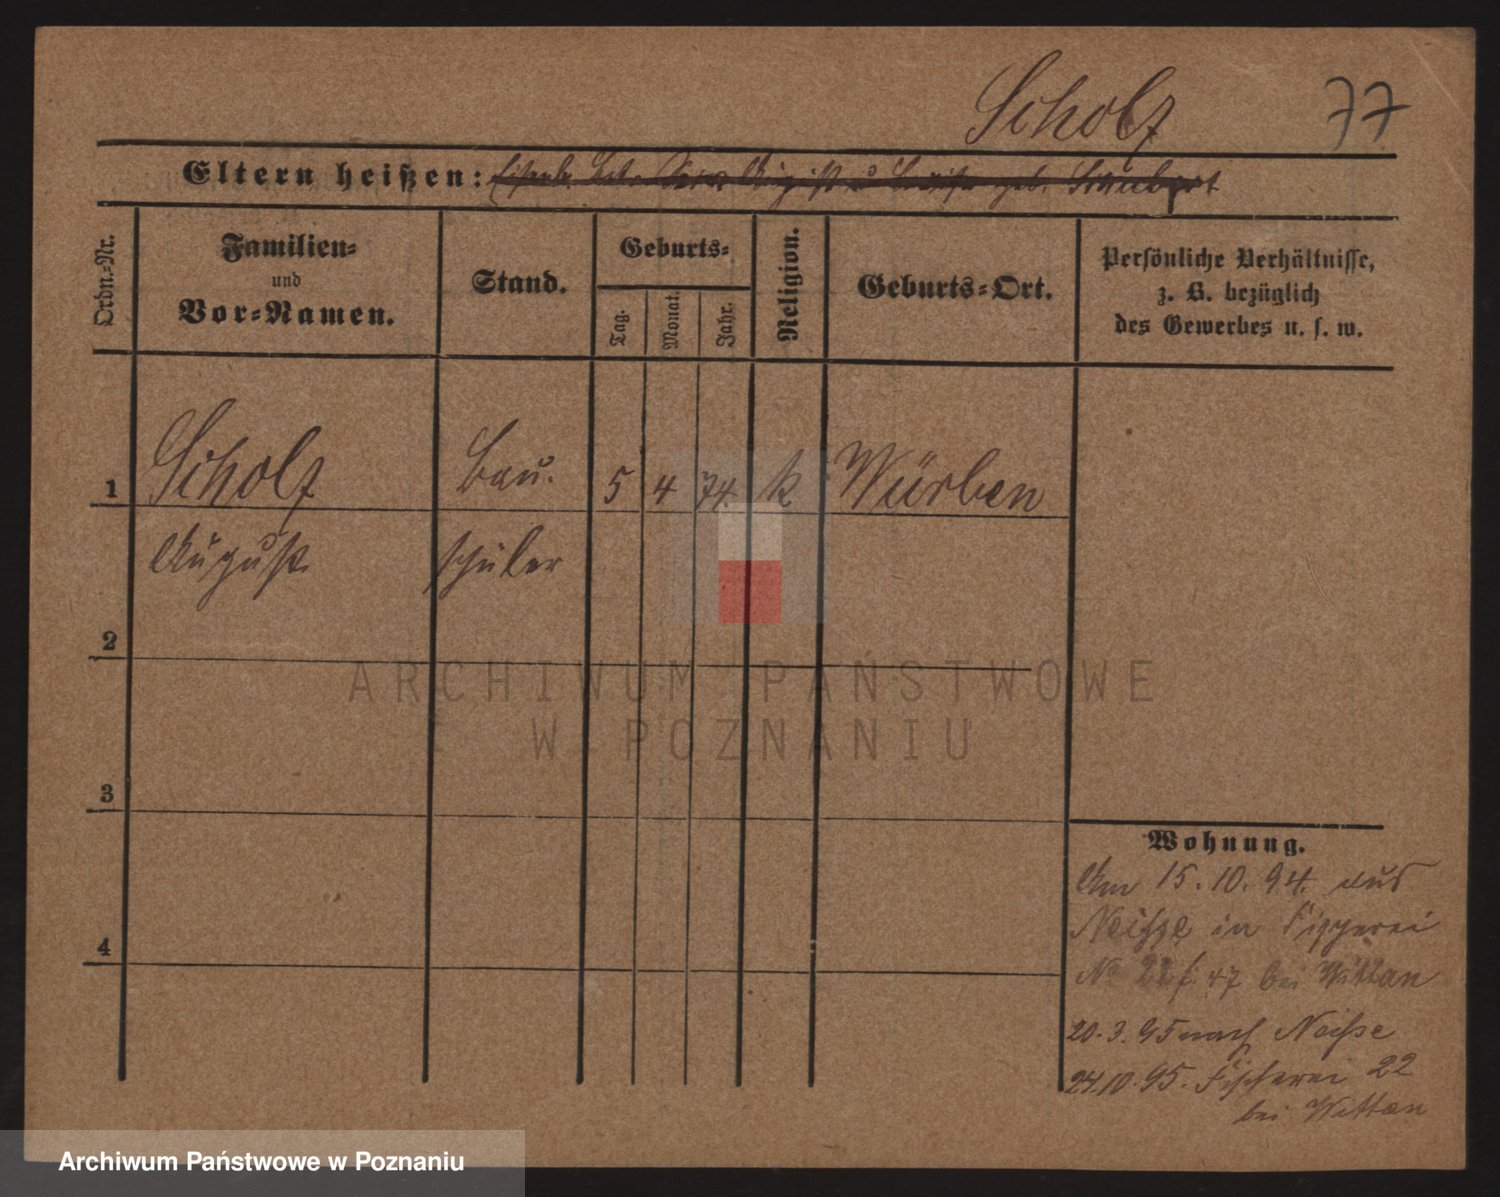 Scholz 77
Eltern heißen: August u geb. Schubert
Ordn.-Nr.
Familien-
und
Vor-Namen.
Stand.
Geburts-
Tag.
Monat.
Jahr.
Religion.
Geburts-Ort.
Persönliche Verhältnisse,
z. B. bezüglich
des Gewerbes u. s. w.
1 Scholz Bau- 5 4 74. k Würben
August schüler
2
3
4
Wohnung.
Am 15.10.94. aus
Neisse in Fischerei
No 22 bei Wittan
20.3.95 nach Neisse
24.10.95. Fischerei 22
bei Wittan
ARCHIWUM PAŃSTWOWE
W POZNANIU
Archiwum Państwowe w Poznaniu